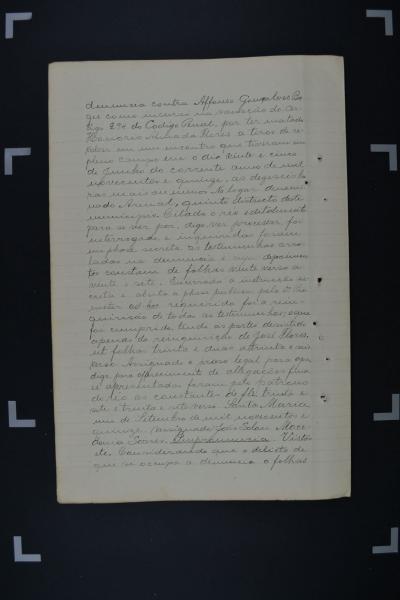 denuncia contra Affonso Gonçalves Bor
ges como incurso na sancção do ar-
tigo 294 do Codigo Penal, por ter matado
Honorio Almada Flores a tiros de re-
volver em um encontro que tiveram em
pleno campo em o dia vinte e cinco
de Junho do corrente anno de mil
novecentos e quinze, as dezeseis ho-
ras mais ou menos no logar denomi-
nado Arenal, quinto districto deste
municipio. Citado o réo edital
para se ver por, digo, ver processar, foi
interrogado e inqueridas foram
em phase secreta as testemunhas arro-
ladas na denuncia e cujo depoimen
tos constam de folhas vinte verso a
vinte e sete. Encerrada a instrucção se-
creta e aberta a phase publica pelo Dr. Pro
motor foi requerida foi a rein-
quirição de todas as testemunhas, o que
foi cumprido, tendo as partes desistido
apenas da reinquirição de José Flores,
ut folhas trinta e duas a trinta e seis
verso. Assignado o praso legal para apre
digo, para offerecimento de allegações finaes
e apresentadas foram pelo patrono
do réo as constantes de fls. trinta e
sete a trinta e oito verso. Santa Maria
um de Setembro de mil novecentos e
quinze. Assignado João Solon Mace-
donia Soares. Despronuncia. Vistos
etc. Considerando que o delicto de
que se occupa a denuncia a folhas